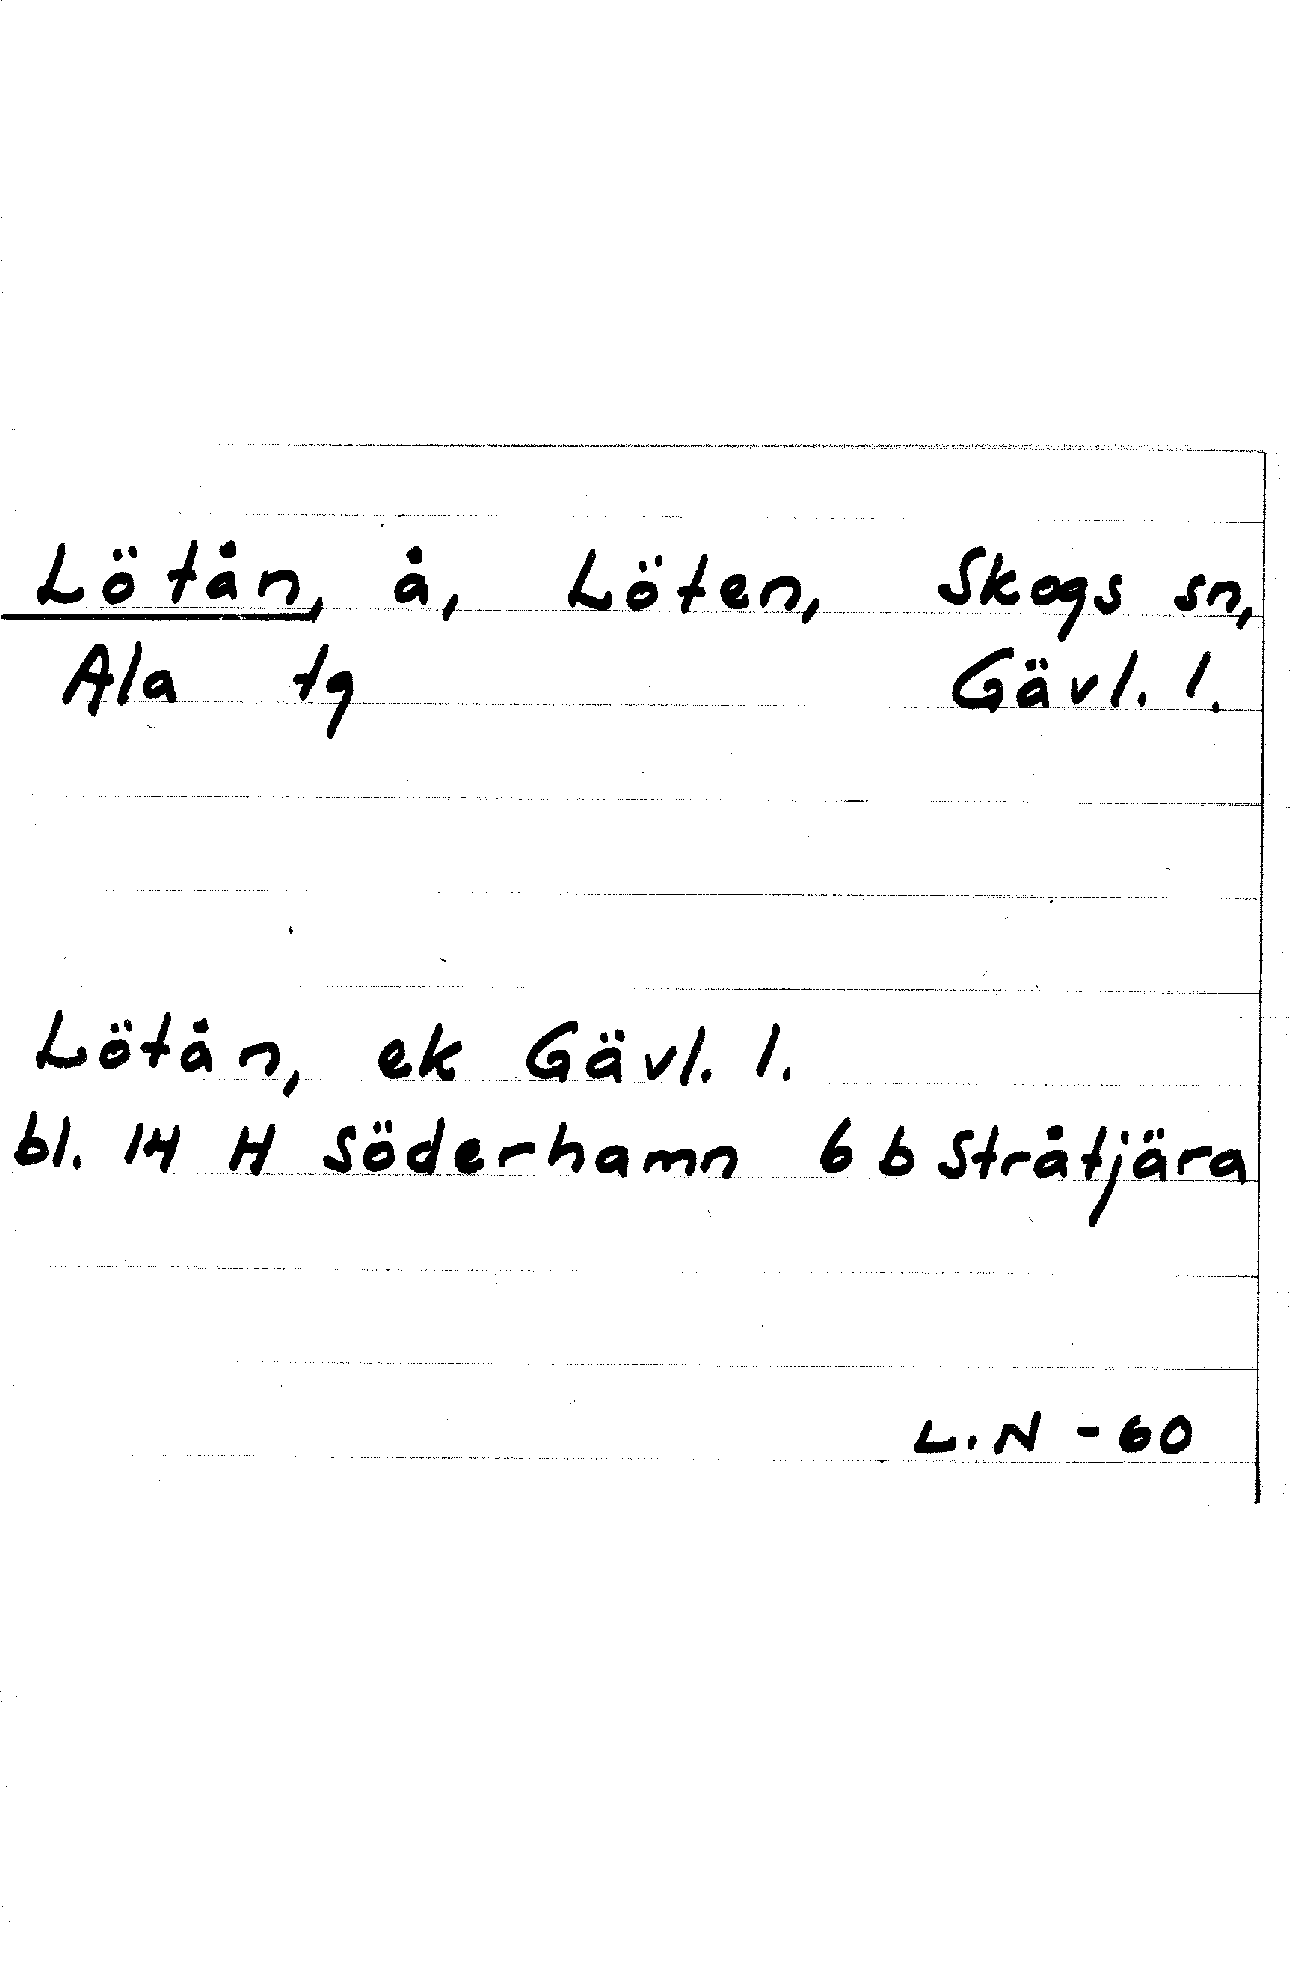 Lötån, å, Löten, Skogs sn,
Ala tg Gävl. l.
Lötån, ek Gävl. l.
bl. 14 H Söderhamn 6 b Stråtjära
L.N -60